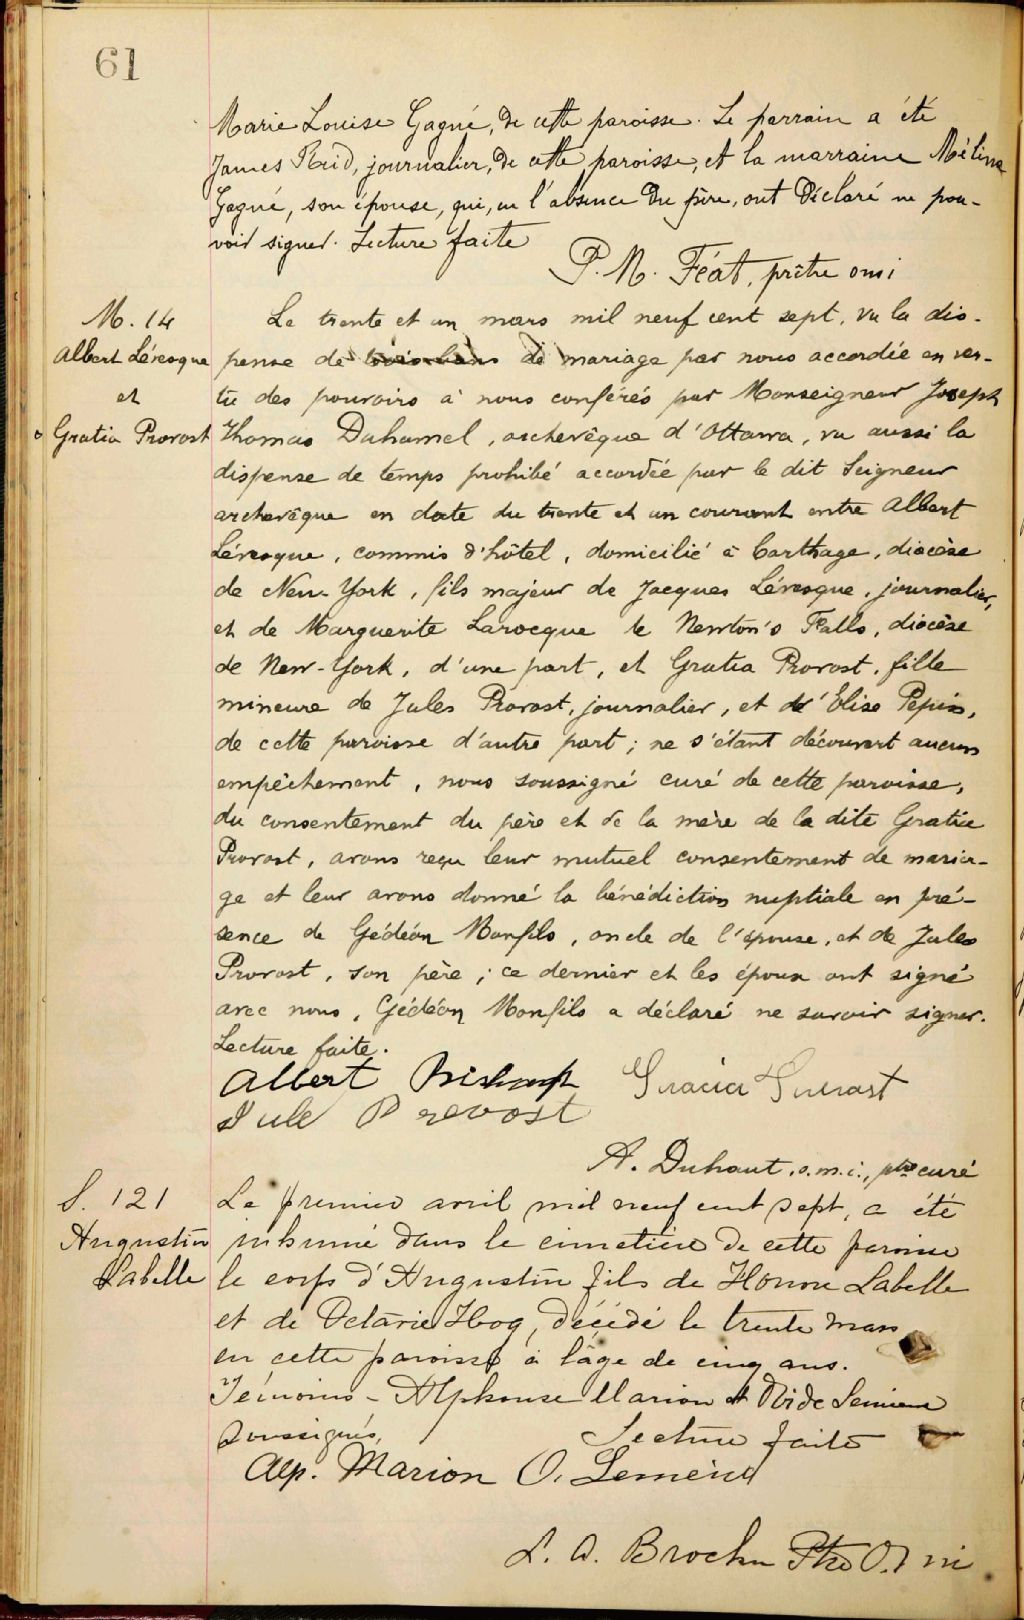 61
Marie Louise Gagné, de cette paroisse. Le parrain a été
James Reid, journalier, de cette paroisse, et la marraine Mélina
Gagné, son épouse, qui, en l'absence du père, ont déclaré ne pou-
voir signer. Lecture faite
P. M. Féat, prêtre omi
M. 14
Albert Lévesque
et
Gratia Provost
Le trente et un mars mil neuf cent sept, vu la dis-
pense de trois bans de mariage par nous accordée en ver-
tu des pouvoirs à nous conférés par Monseigneur Joseph
Thomas Duhamel, archevêque d'Ottawa, vu aussi la
dispense de temps prohibé accordée par le dit Seigneur
archevêque en date du trente et un courant entre Albert
Lévesque, commis d'hôtel, domicilié à Carthage, diocèse
de New-York, fils majeur de Jacques Lévesque, journalier,
et de Marguerite Larocque de Newton's Falls, diocèse
de New-York, d'une part, et Gratia Provost, fille
mineure de Jules Provost, journalier, et d'Elise Pepin,
de cette paroisse d'autre part; ne s'étant découvert aucun
empêchement, nous soussigné curé de cette paroisse,
du consentement du père et de la mère de la dite Gratia
Provost, avons reçu leur mutuel consentement de maria-
ge et leur avons donné la bénédiction nuptiale en pré-
sence de Gédéon Monfils, oncle de l'épouse, et de Jules
Provost, son père; ce dernier et les époux ont signé
avec nous, Gédéon Monfils a déclaré ne savoir signer.
Lecture faite.
Albert Bishop
Jule Prevost
A. Duhaut, o.m.i., ptre curé
S. 121
Augustin
Labelle
Le premier avril mil neuf cent sept, a été
inhumé dans le cimetière de cette paroisse
le corps d'Augustin fils de Honoré Labelle
et de Octavie Hog, décédé le trente mars
en cette paroisse à l'âge de cinq ans.
Témoins - Alphonse Marion et Ovide Lemieux
soussignés,
Lecture faite
Alp. Marion O. Lemieux
L. A. Ptre O.M.I